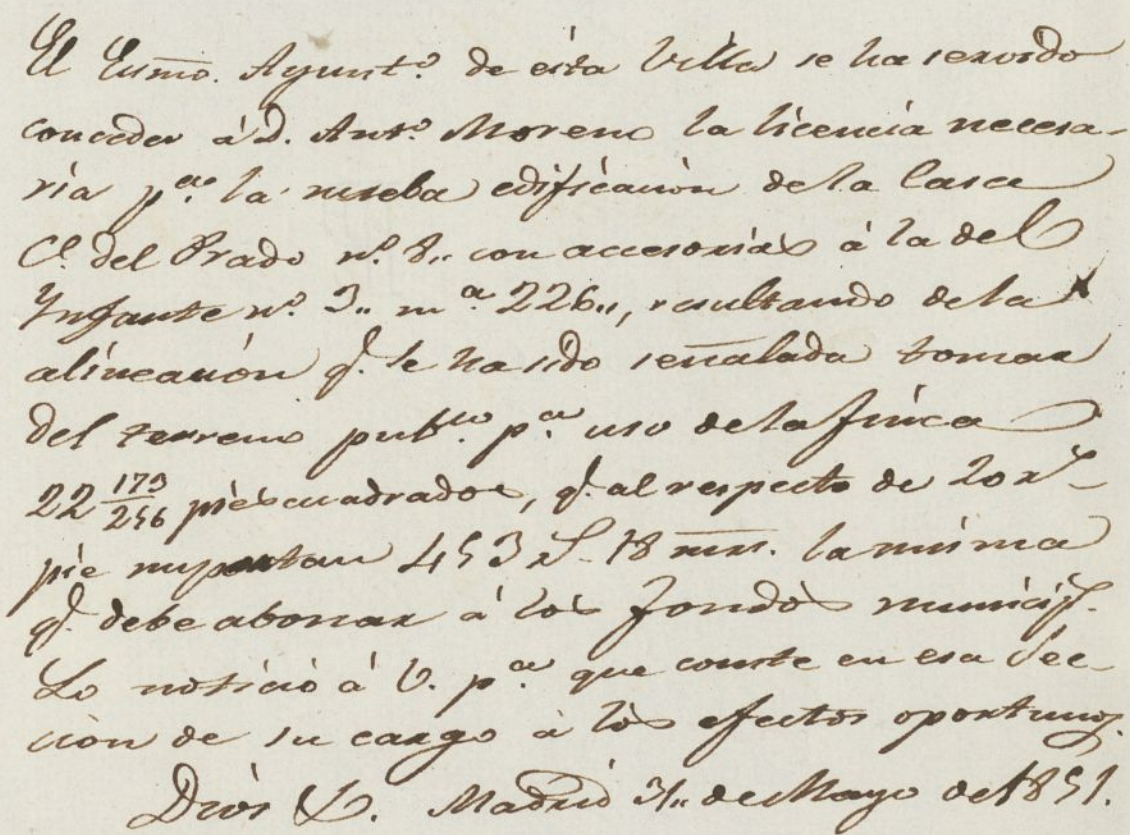 El Exmo. Ayunt.º de esta Villa se ha servido
conceder á D. Ant.º Moreno la licencia necesa-
ria p.ª la nueba edificación de la Casa
C.e del Prado n.º 8,, con accesorias á la del
Infante n.º 3,, m.ª 226,,, resultando de la
alineación q.e le ha sido señalada tomar
del terreno pub.co p.ª uso de la finca
22 173/256 pies cuadrados, q.e al respecto de 20 r.s
pie importan 453 r.s 18 mrs. la misma
q.e debe abonar á los fondos municip.s
Lo noticio á V. p.ª que conste en esa Sec-
ción de su cargo á los efectos oportunos.
Dios &. Madrid 31,, de Mayo de 1851.